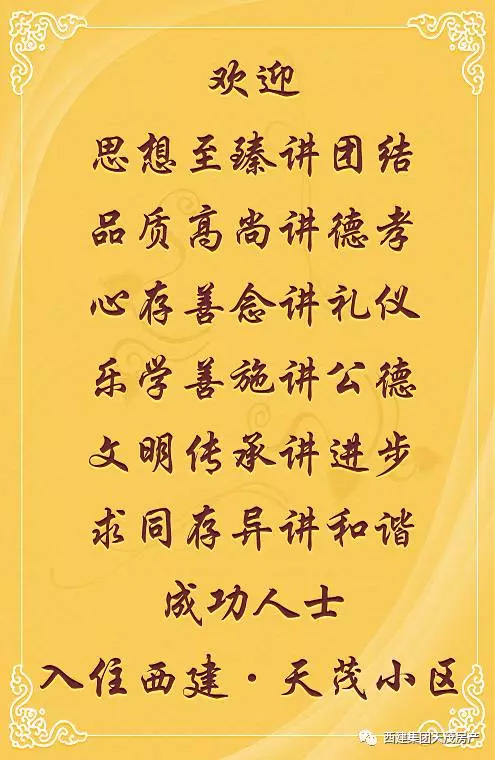 欢迎
思想至臻讲团结
品质高尚讲德孝
心存善念讲礼仪
乐学善施讲公德
文明传承讲进步
求同存异讲和谐
成功人士
入住西建·天茂小区
西建集团天茂房产